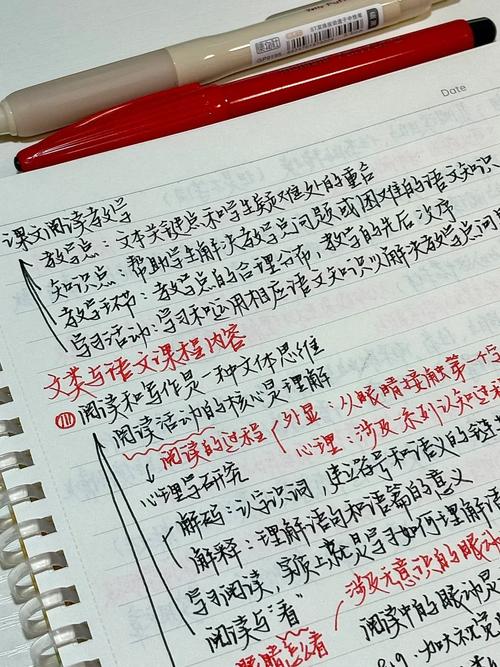 Date
课文阅读教学
教学点：文本关键点和学生疑难处的重合
知识点：帮助学生解决教学点问题或困难的语文知识
教学环节：教学点的合理分布，教学的先后次序
学习活动：学习和运用相应语文知识以解决教学点问
文类与语文课程内容
阅读和写作是一种文体思维
阅读活动的核心是理解
阅读的过程
外显：从眼睛接触第一个字
心理：涉及系列认知过程
心理学研究
解码：认字识词，建立符号和语义的链接
解释：理解语句和语篇的意义
学习阅读，实质上就是学习如何理解语
阅读与"看"
涉及无意识的眼动
阅读中的眼动是
眼睛怎么看